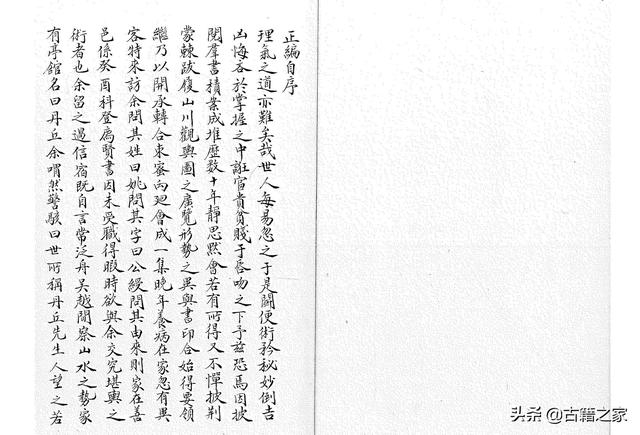 正編自序
理氣之道亦難矣哉世人每易忽之于是鬭便術矜秘妙倒吉
凶悔吝於掌握之中誑富貴貧賤于唇吻之下予茲恐焉因披
閱羣書積案成堆歷數十年靜思默會若有所得又不憚披荆
蒙棘跋履山川觀輿圖之廣覽形勢之異與書印合始得要領
繼乃以開承轉合束蜜向廻會成一集晚年養病在家忽有異
客特來訪余問其姓曰姚問其字曰公綬問其由來則家在善
邑係癸酉科登鳫賢書因未受職得暇時欲與余交究堪輿之
術者也余留之過信宿既自言常泛舟吳越間察山水之勢家
有亭館名曰丹丘余喟然驚駭曰世所稱丹丘先生人望之若
头条@古籍之家